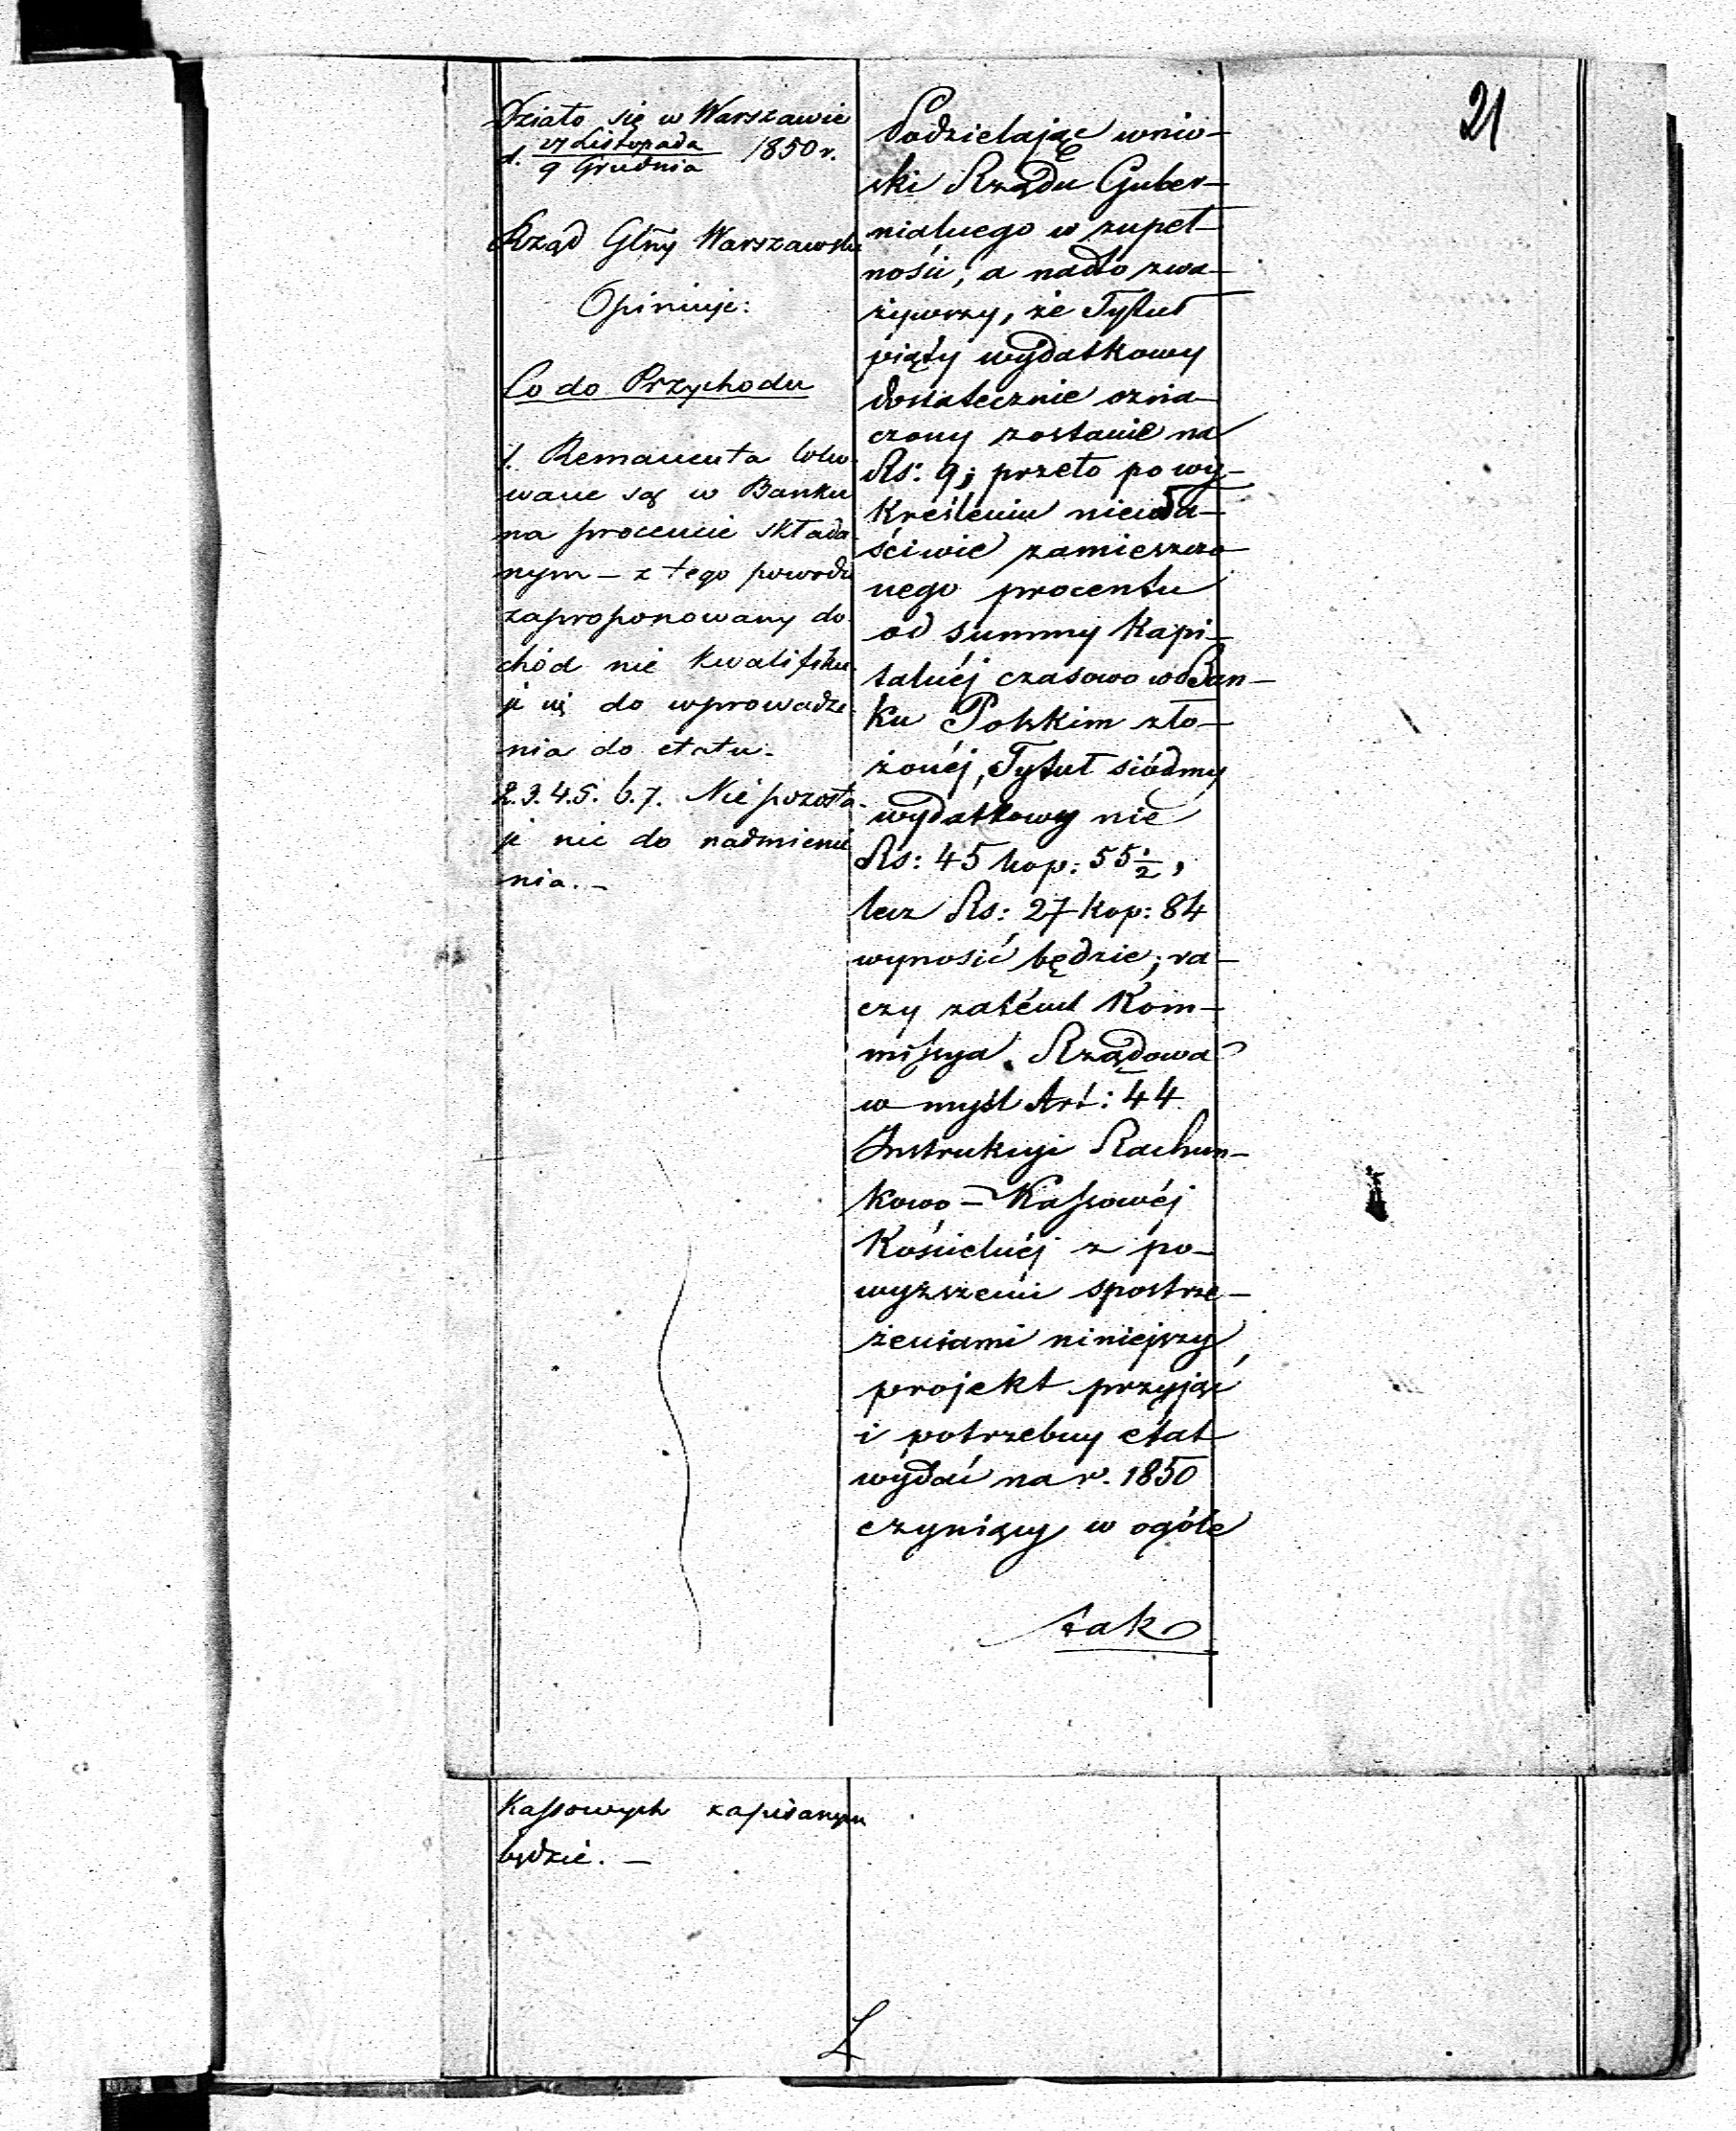 21
Działo się w Warszawie
d. 27 Listopada / 9 Grudnia 1850 r.
Rząd Glny Warszawski
Opiniuje:
Co do Przychodu
1. Remanenta loko-
wane są w Banku
na procencie składa-
nym – z tego powodu
zaproponowany do-
chód nie kwalifiku-
je się do wprowadze-
nia do etatu.
2.3.4.5.6.7. Nie pozosta-
je nic do nadmienie
nia. –
Podzielając wnio-
ski Rządu Guber-
nialnego w zupeł-
ności, a nadto zwa-
żywszy, że Tytuł
piąty wydatkowy
dostatecznie ozna-
czony zostanie na
Rs: 9; przeto po wy-
kreśleniu niewła-
ściwie zamieszczo
nego procentu
od summy kapi-
talnéj czasowo w Ban-
ku Polskim zło-
żonéj, Tytuł siódmy
wydatkowy nie
Rs: 45 kop: 55 1/2,
lecz Rs: 27 kop: 84
wynosić będzie; ra-
czy zatém Kom-
missya Rządowa
w myśl Art: 44
Instrukcyi Rachun-
kowo – Kassowéj
Kościelnéj z po-
wyższemi spostrze-
żeniami niniejszy
projekt przyjąć
i potrzebny etat
wydać na r. 1850
czyniący w ogóle
tak
Kassowych zapisanym
będzie. –